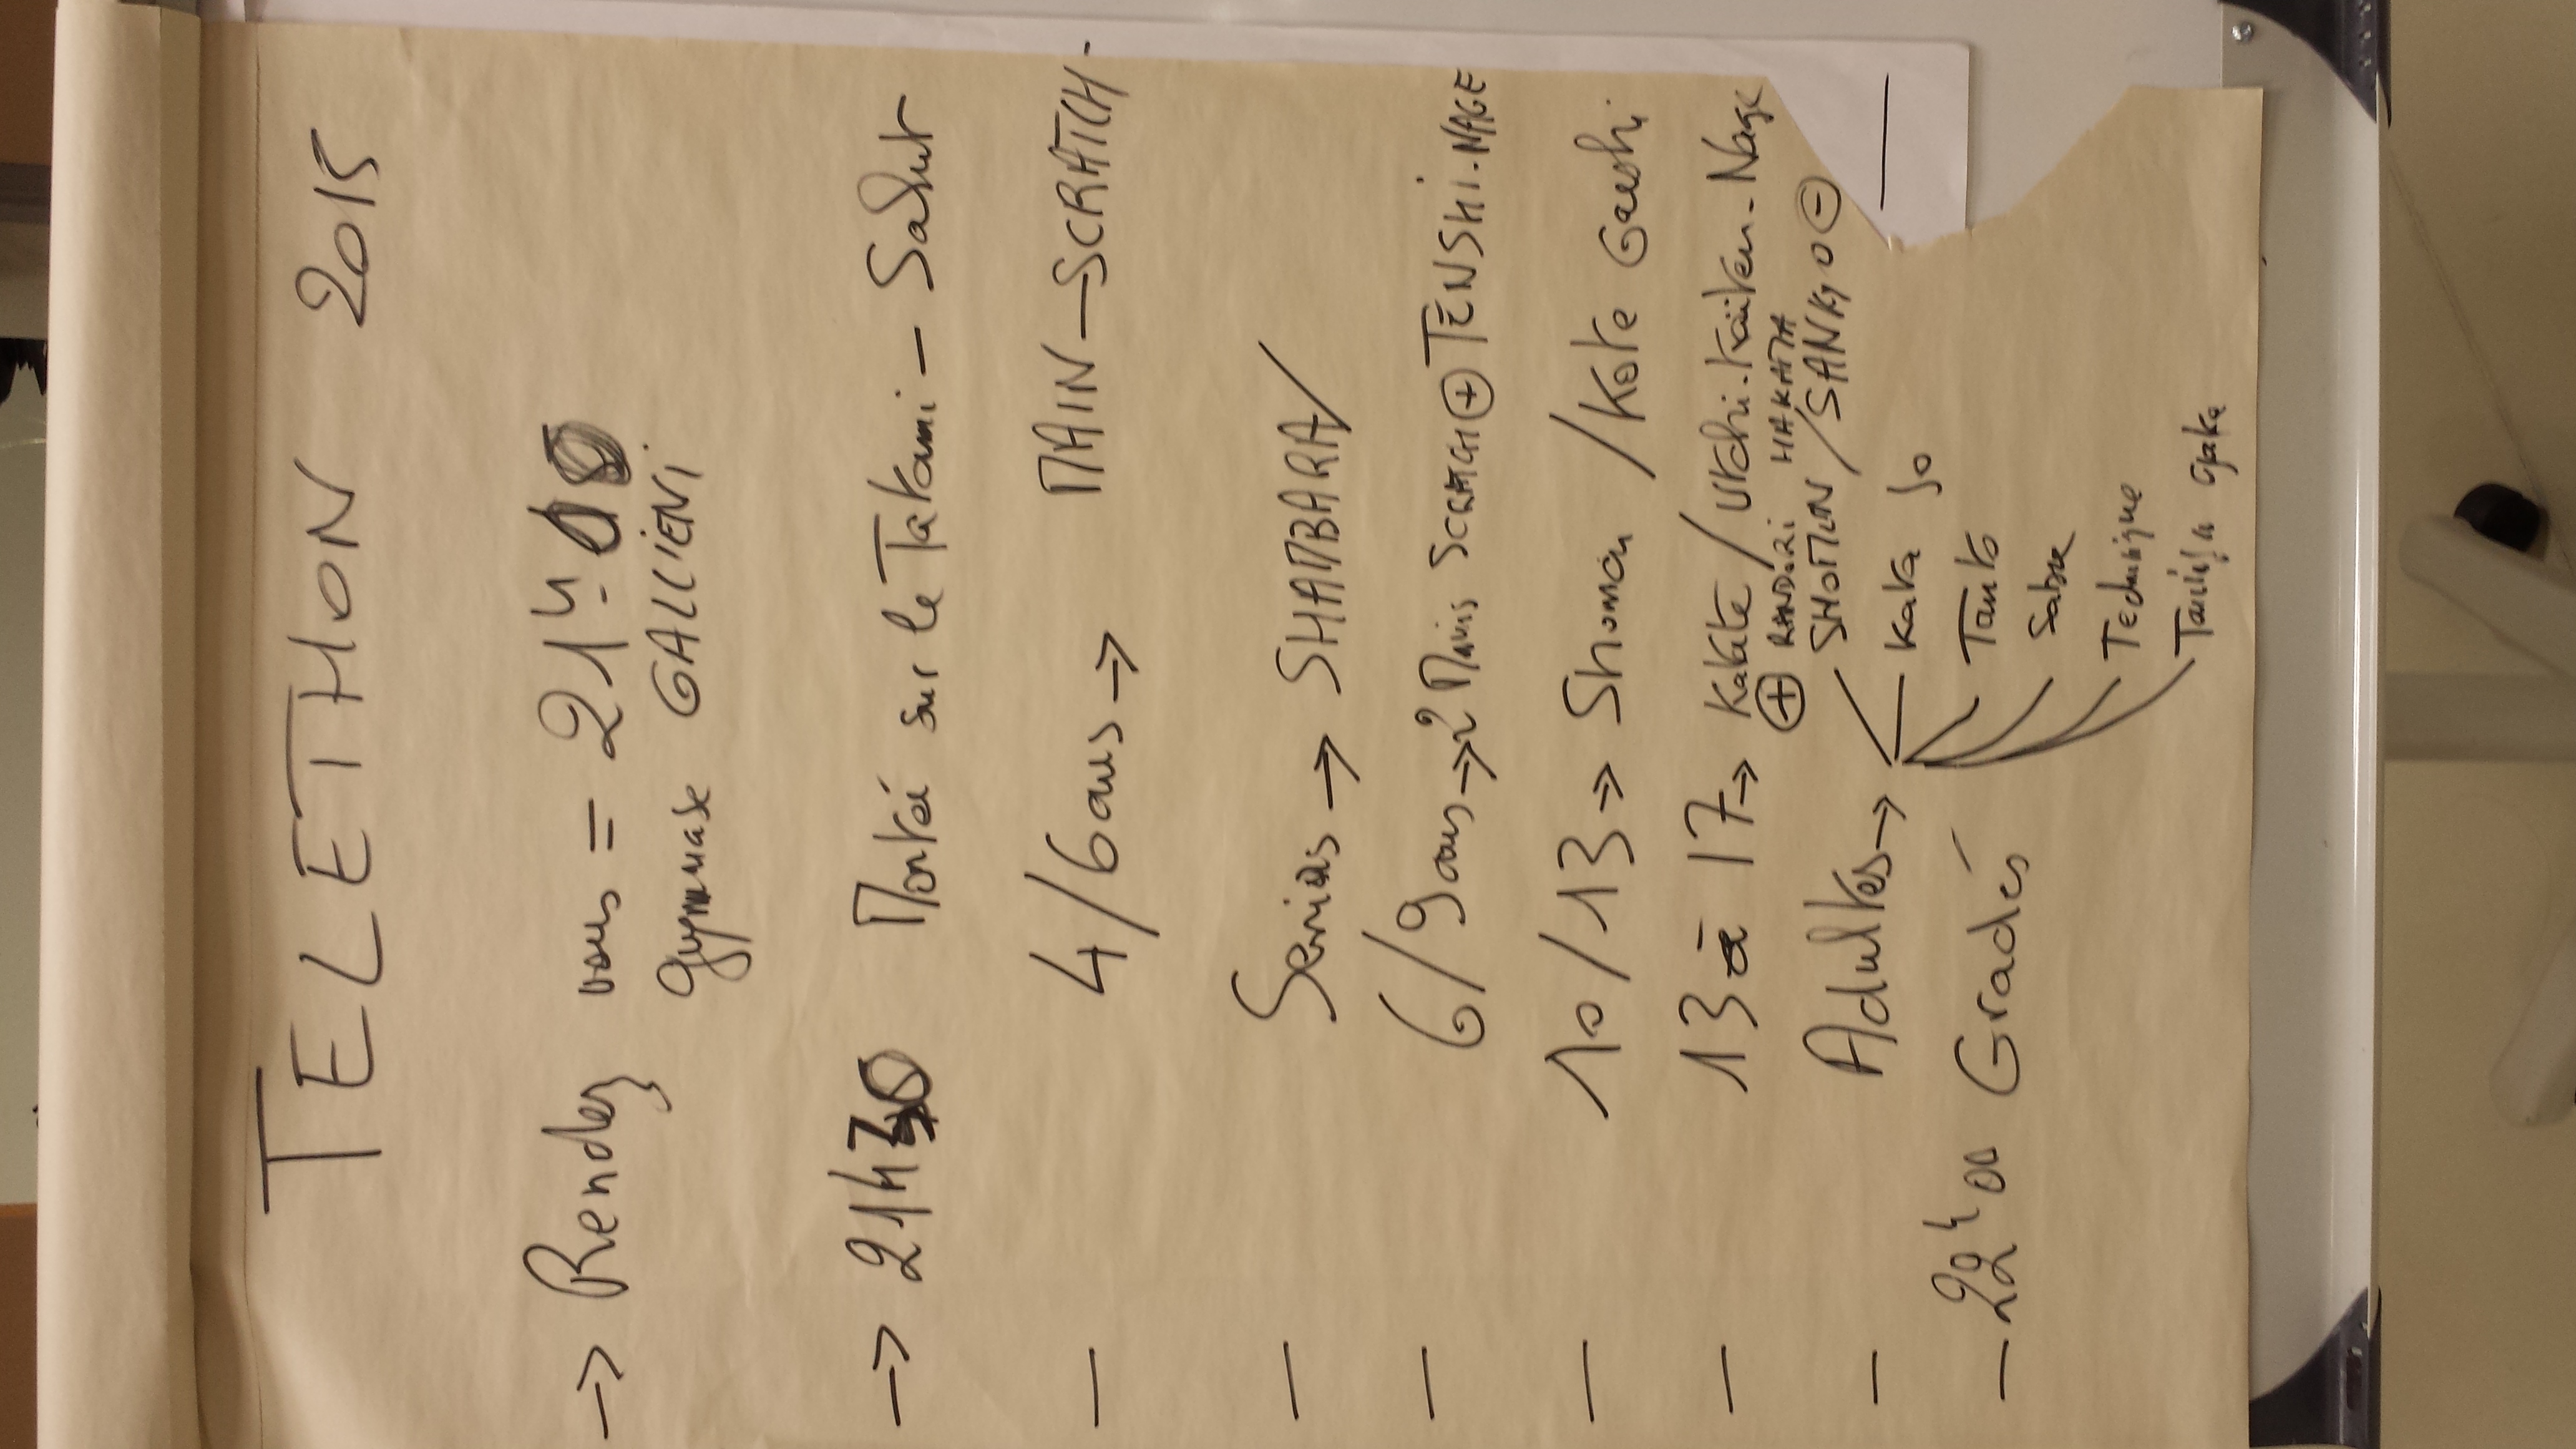 TELETHON 2015
→ Rendez vous = 21h
gymnase GALLIENI
→ 21H Monté sur le Tatami - Salut
- 4/6 ans → MAIN - SCRATCH -
- Senias → SHAMBARA/
- 6/9 ans → 2 Mains SCRATCH ⊕ TENSHI-NAGE
- 10/13 → Shomen / Kote Gaeshi
- 13 à 17 → Katate / Uchi-Kaiten-Nage
⊕ RANDORI HAKATA
- Adultes → SHOMEN / SANKYO ⊖
Kata Jo
Tanto
Sabre
Technique
- 22h00 Gradés